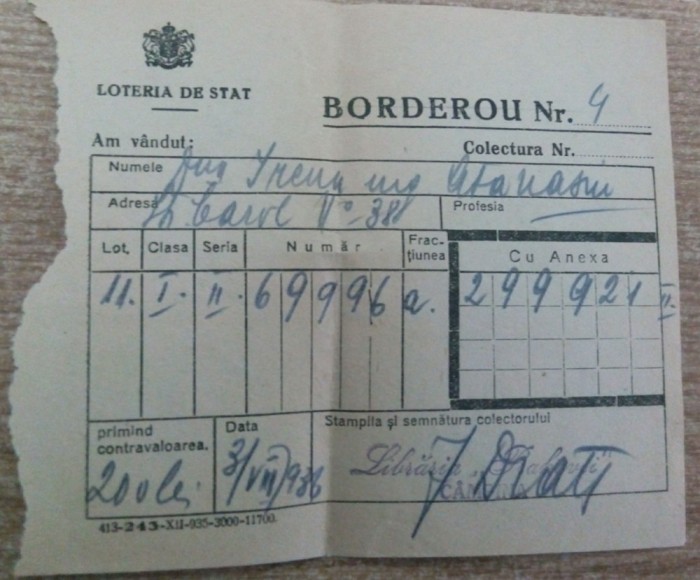 LOTERIA DE STAT
BORDEROU Nr. 4
Am vândut:
Colectura Nr.
Numele Dna Irena
Adresa Carol No 38
Profesia
Lot. Clasa Seria Număr Frac-țiunea Cu Anexa
11. I. II. 69996 a. 299921 II.
primind contravaloarea.
200 lei
Data
3/VII/936
Stampila și semnătura colectorului
Librăria
413-243-XII-935-3000-11700.